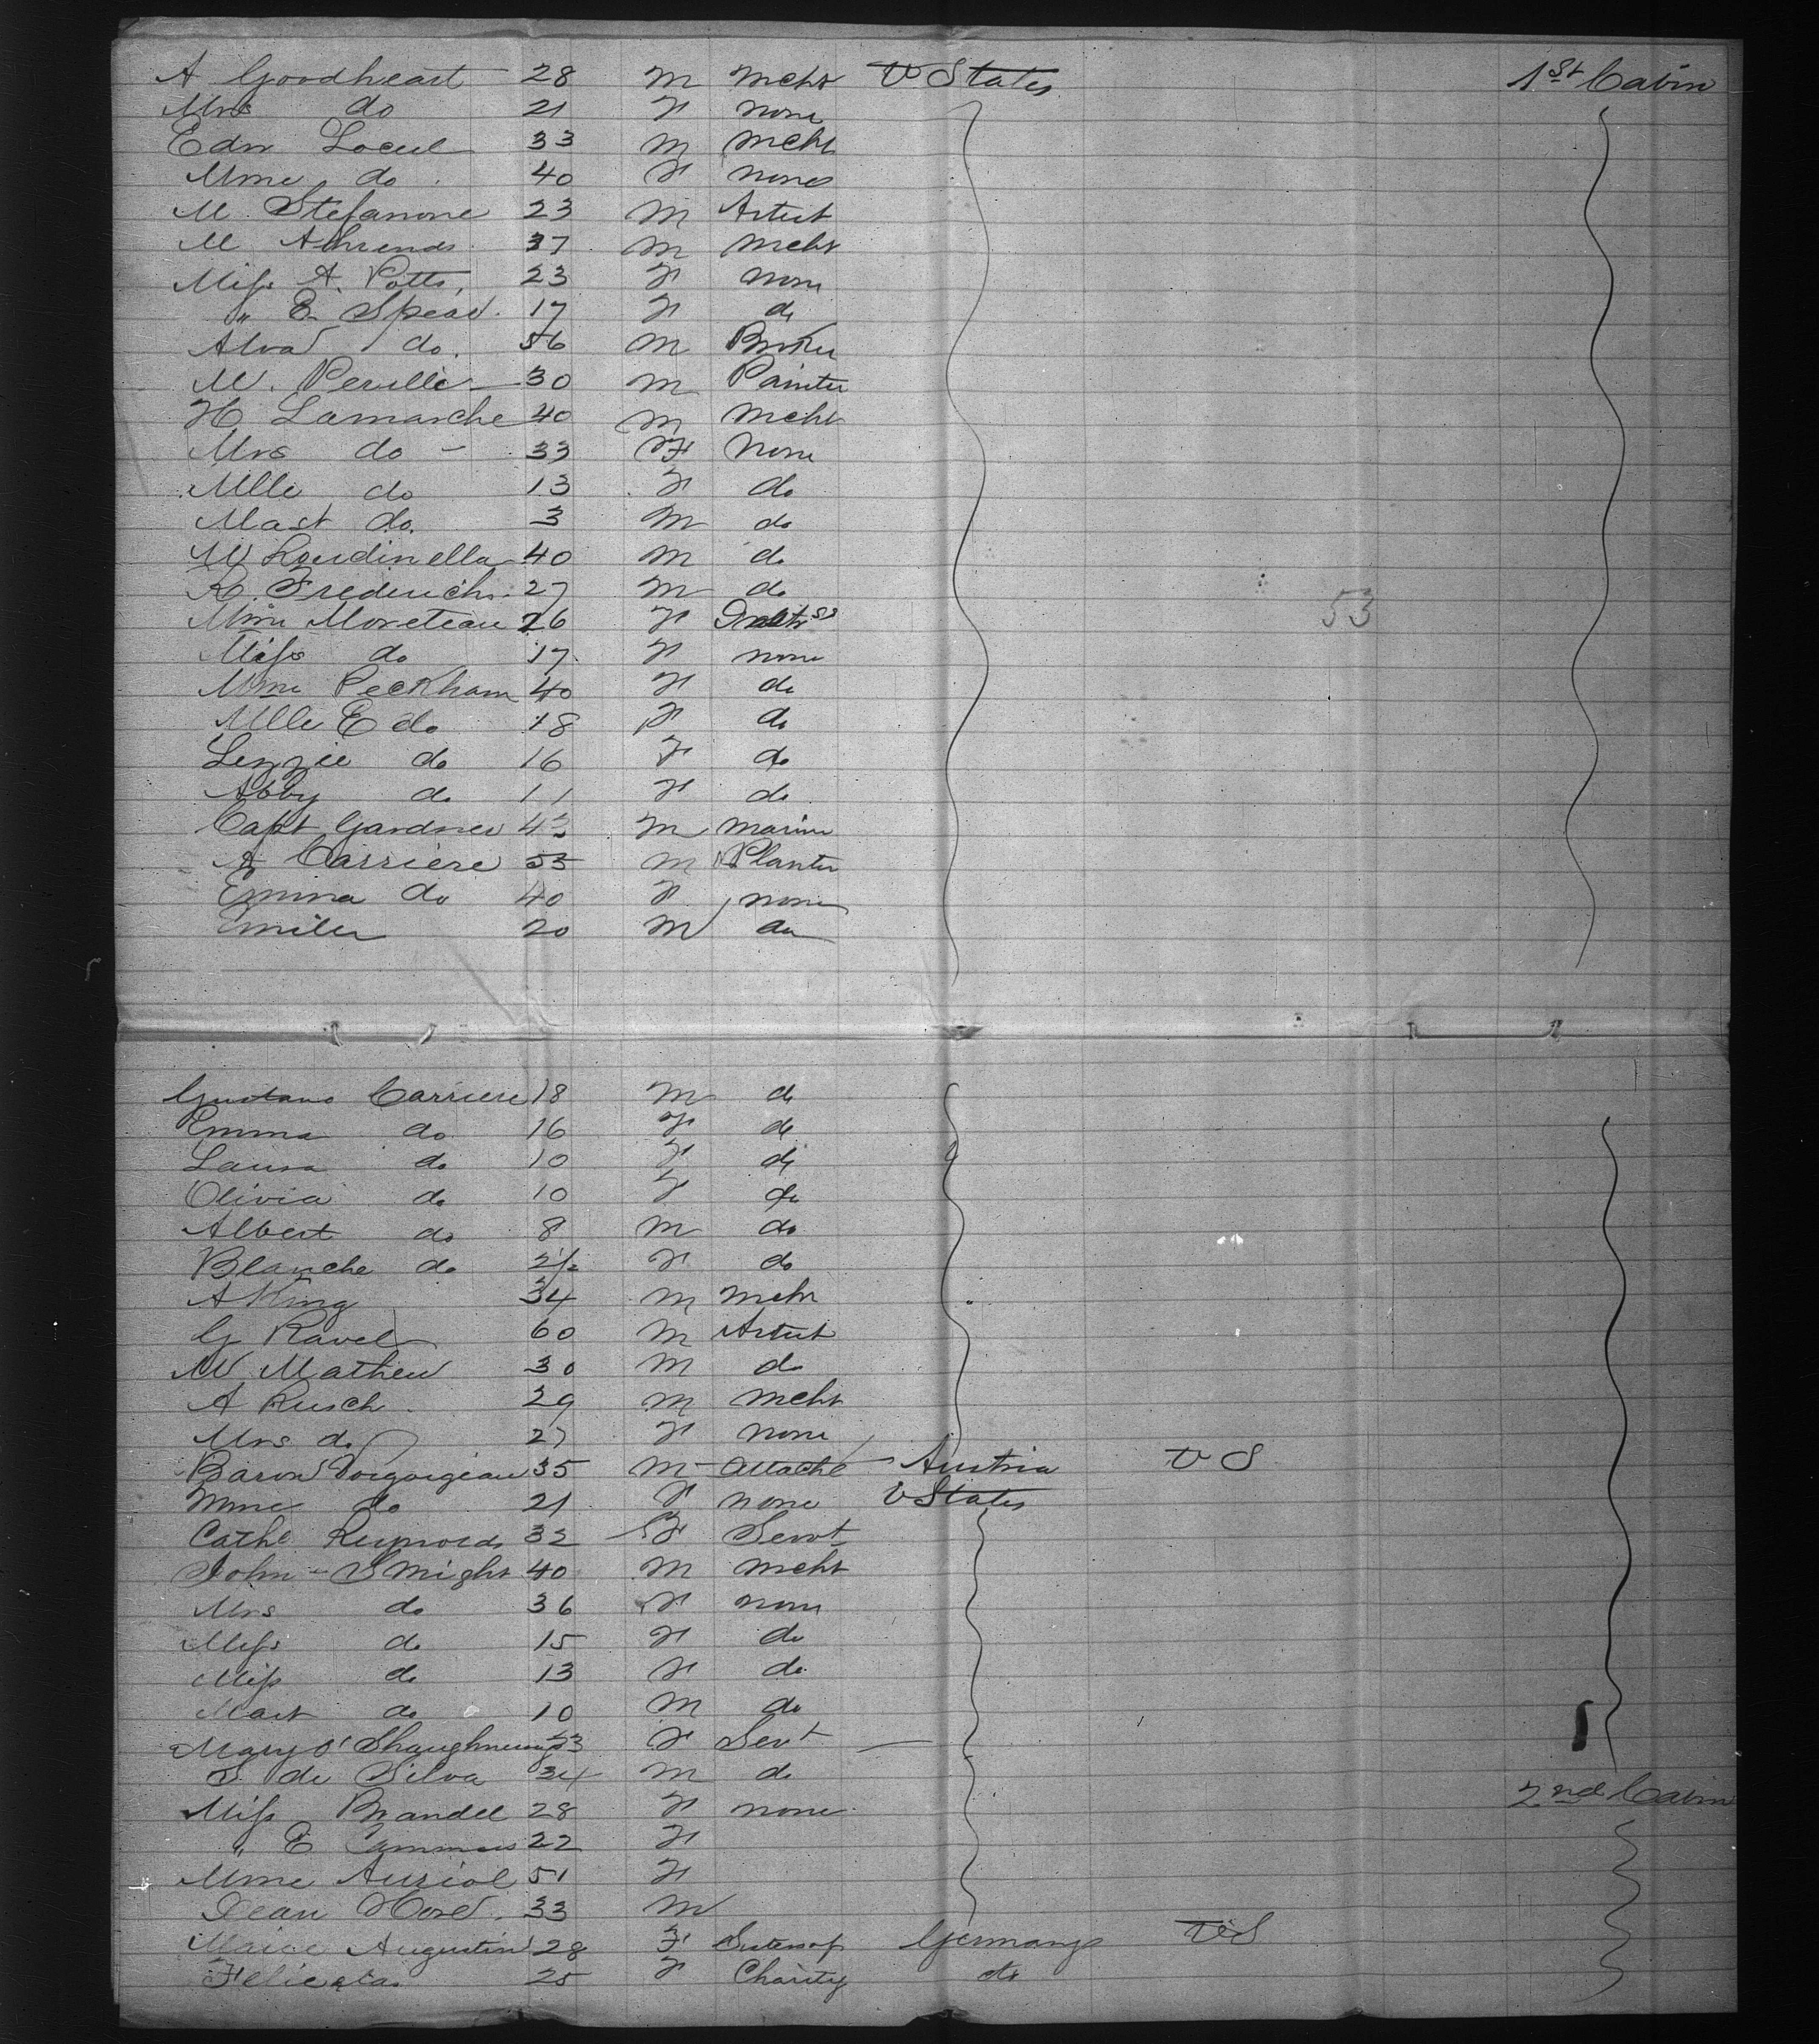 A Goodheart 28 M Mcht U States 1st Cabin
Mrs do 21 F none
Edw Locul 33 M Mcht
Mme do 40 F none
M. Stefanone 23 M Artist
M Ahrends 37 M Mcht
Miss A. Potts, 23 F none
" E Spear. 17 F do
Alva do. 56 M Broker
M. Perille 30 M Painter
H Lamarche 40 M Mcht
Mrs do - 33 F None
Mlle do 13 F do
Mast do. 3 M do
M Loudinella 40 M do
R. Frederichs 27 M do
Mme Moreteau 26 F
53
Miss do 17 F none
Mme Peckham 40 F do
Mlle E do 18 F do
Lizzie do 16 F do
Abby do 11 F do
Capt Gardner 43 M Marine
A Carriere 55 M Planter
Emma do 40 F none
Emile 20 M do
Gustave Carriere 18 M do
Emma do 16 F do
Laura do 10 F do
Olivia do 10 F do
Albert do 8 M do
Blanche do 2 1/2 F do
A King 34 M Mcht
G Ravel 60 M Artist
M Mathew 30 M do
A Rusch 29 M Mcht
Mrs do 27 F none
Baron 35 M Attaché Austria U S
Mme do 21 F none U States
Cath. Reynolds 32 F Servt
John Smight 40 M Mcht
Mrs do 36 F none
Miss do 15 F do
Miss do 13 F do
Mast do 10 M do
Mary O'Shaughnessy 23 F Servt
S. de Silva 34 M do 2nd Cabin
Miss Brandel 28 F none
" E 22 F
Mme Auriol 51 F
Jean 33 M
Marie Augustin 28 F Sisters of Germany U S
Felicitas 25 F Charity do